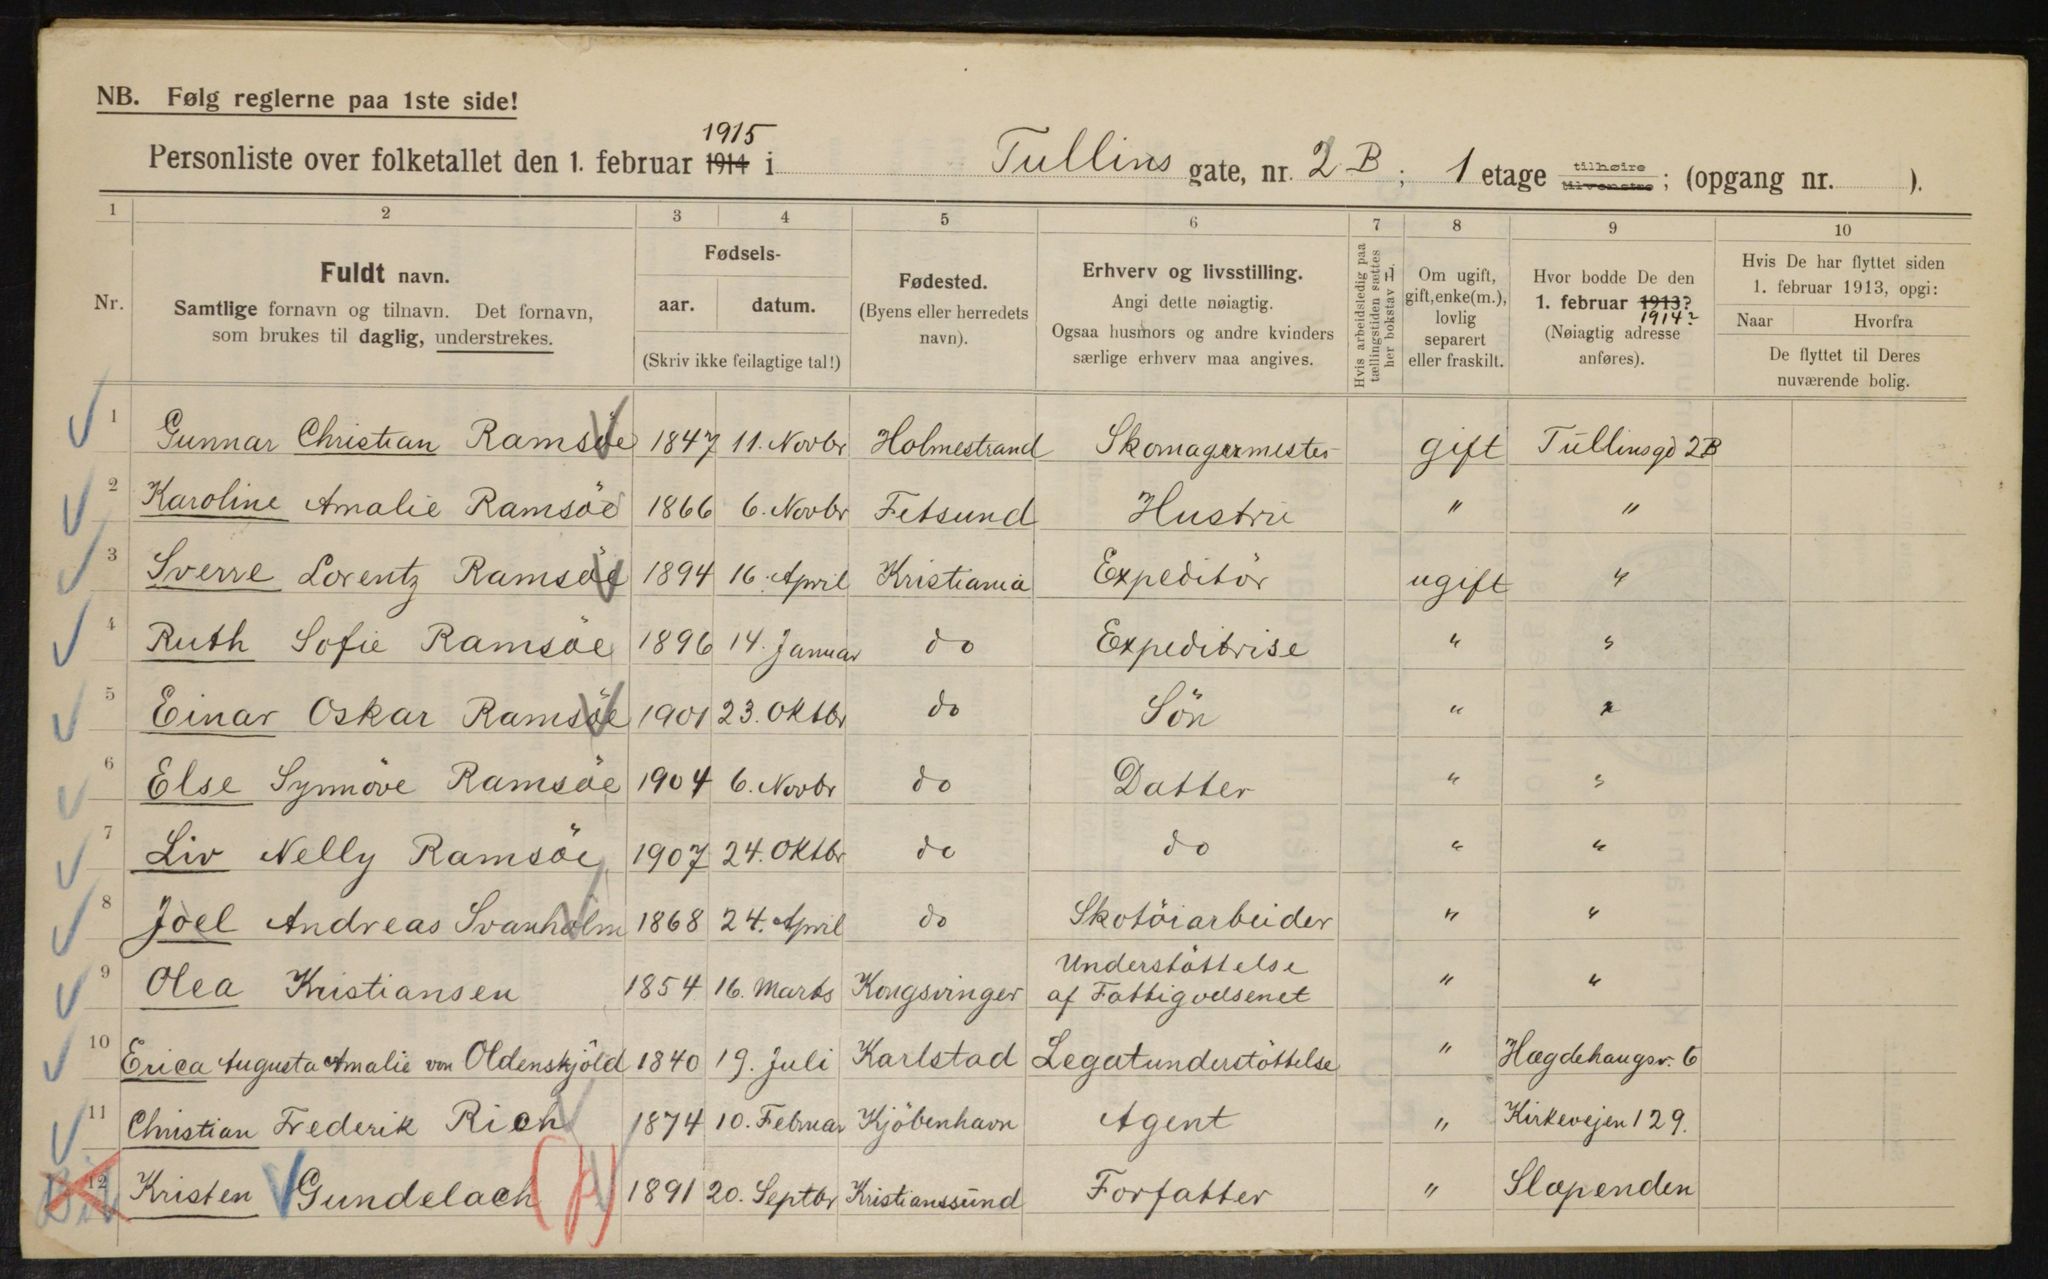 NB. Følg reglerne paa 1ste side!
1915
Personliste over folketallet den 1. februar 1914 i Tullins gate, nr. 2 B ; 1 etage tilhøire tilvenstre ; (opgang nr. ).
1 2 3 4 5 6 7 8 9 10
Nr.
Fuldt navn.
Samtlige fornavn og tilnavn. Det fornavn,
som brukes til daglig, understrekes.
Fødsels-
aar. datum.
(Skriv ikke feilagtige tal!)
Fødested.
(Byens eller herredets
navn).
Erhverv og livsstilling.
Angi dette nøiagtig.
Ogsaa husmors og andre kvinders
særlige erhverv maa angives.
Hvis arbeidsledig paa
tællingstiden sættes
her bokstav L.
Om ugift,
gift, enke(m.),
lovlig
separert
eller fraskilt.
Hvor bodde De den
1. februar 1913?
1914?
(Nøiagtig adresse
anføres).
Hvis De har flyttet siden
1. februar 1913, opgi:
Naar Hvorfra
De flyttet til Deres
nuværende bolig.
1 Gunnar Christian Ramsöe 1847 11. Novbr Holmestrand Skomagermester gift Tullinsgd 2B
2 Karoline Amalie Ramsöe 1866 6. Novbr Fetsund Hustru " "
3 Sverre Lorentz Ramsöe 1894 16. April Kristiania Expeditör ugift "
4 Ruth Sofie Ramsöe 1896 14. Januar do Expeditrise " "
5 Einar Oskar Ramsöe 1901 23. Oktbr do Sön " "
6 Else Synnöve Ramsöe 1904 6. Novbr do Datter " "
7 Liv Nelly Ramsöe 1907 24. Oktbr do do " "
8 Joel Andreas Svanholm 1868 24. April do Skotöiarbeider " "
9 Olea Kristiansen 1854 16. Marts Kongsvinger Understöttelse
af Fattigvdsenet " "
10 Erica Augusta Amalie von Oldenskjöld 1840 19. Juli Karlstad Legatunderstöttelse " Hægdehaugsv. 6
11 Christian Frederik Rich 1874 10. Februar Kjöbenhavn Agent " Kirkevejen 129.
12 Kristen Gundelach 1891 20. Septbr Kristianssund Forfatter " Slæpenden